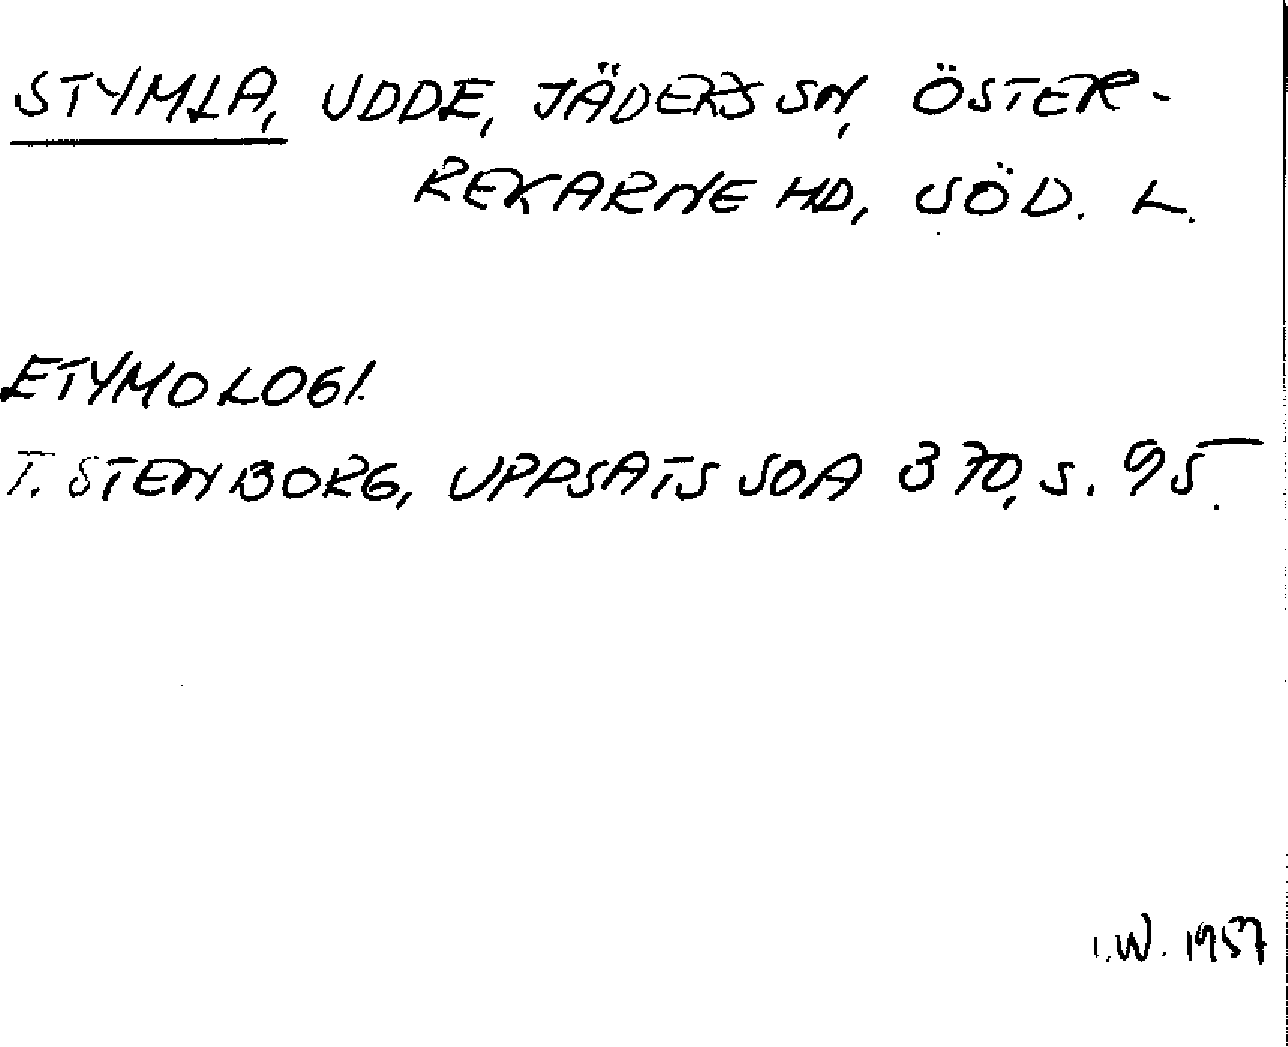 STYMLA, UDDE, JÄDERS SN, ÖSTER-
REKARNE HD, SÖD. L.
ETYMOLOGI.
T. STENBORG, UPPSATS SOA 370, S. 95.
I.W. 1957